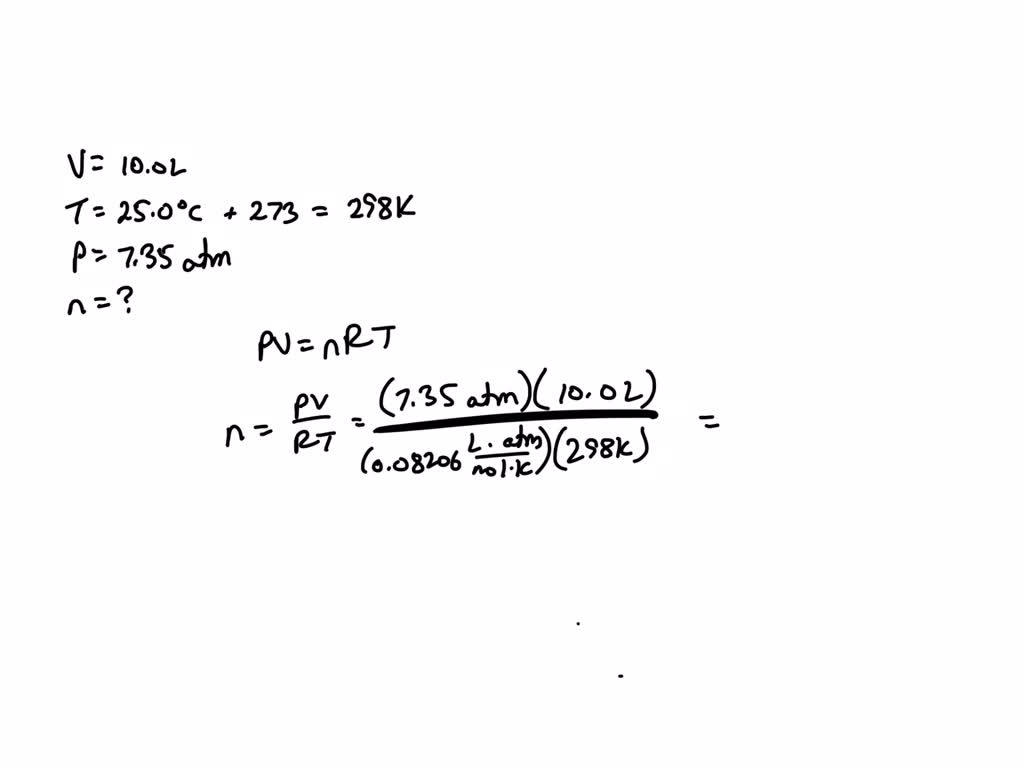 V = 10.0L
T = 25.0°C + 273 = 298K
P = 7.35 atm
n = ?
PV = nRT
n = PV/RT = (7.35 atm)(10.0L)/(0.08206 L·atm/mol·K)(298K) =